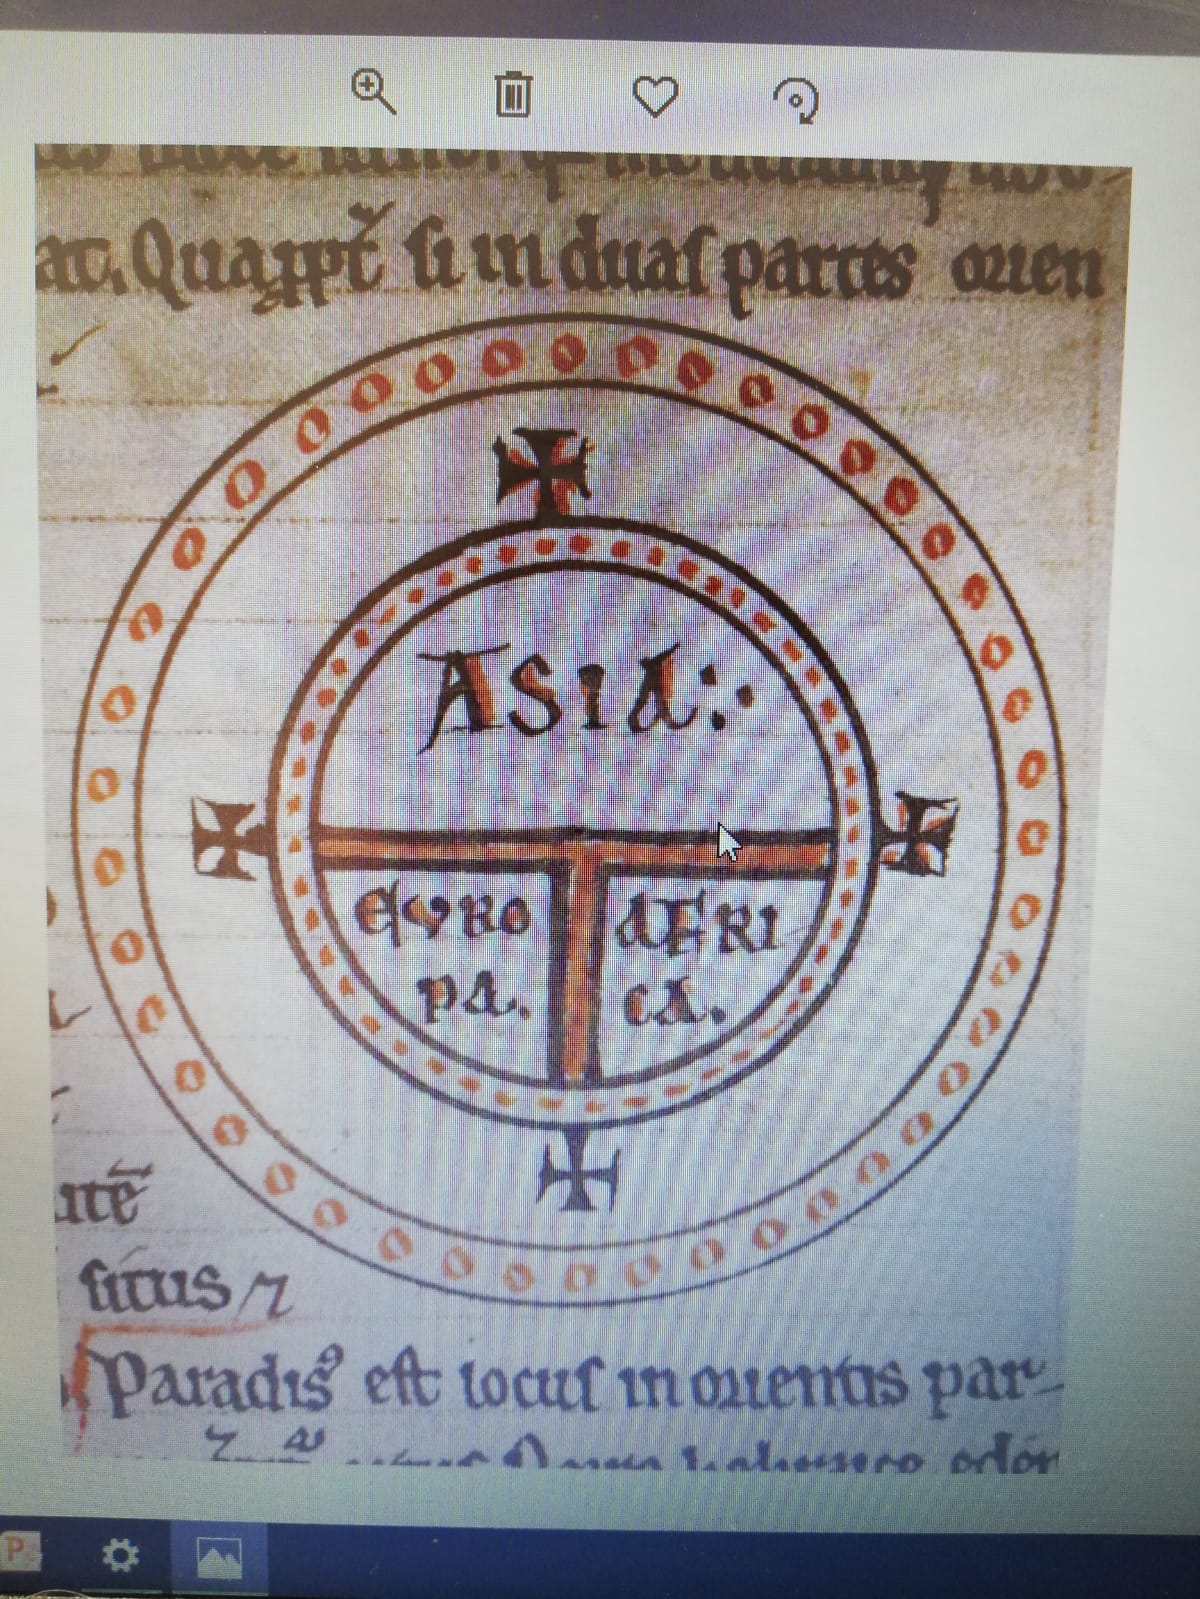 at. Quapꝓt̃ si in duas partes orien
ASIA:·
EVRO
PA.
AFRI
CA.
itē
situs ⁊
Paradisꝰ est locus in orientis par-